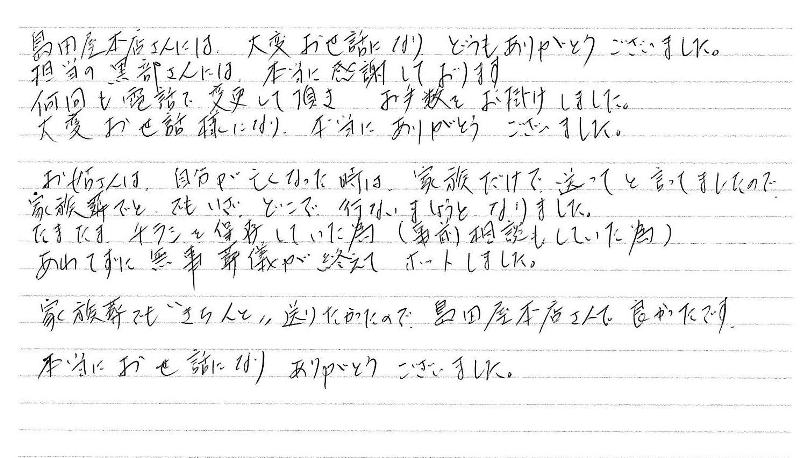 島田屋本店さんには、大変お世話になり どうもありがとうございました。
担当の黒部さんには、本当に感謝しております
何回も電話で変更して頂き お手数をお掛けしました。
大変お世話様になり、本当にありがとうございました。
お姑さんは、自分が亡くなった時は、家族だけで送ってと言ってましたので
家族葬でと でもいざ どこで行ないましょうとなりました。
たまたま チラシを保存していた為（事前相談もしていた為）
あわてずに無事葬儀が終えて ホットしました。
家族葬でも〝きちんと〟送りたかったので、島田屋本店さんで良かったです。
本当にお世話になり ありがとうございました。